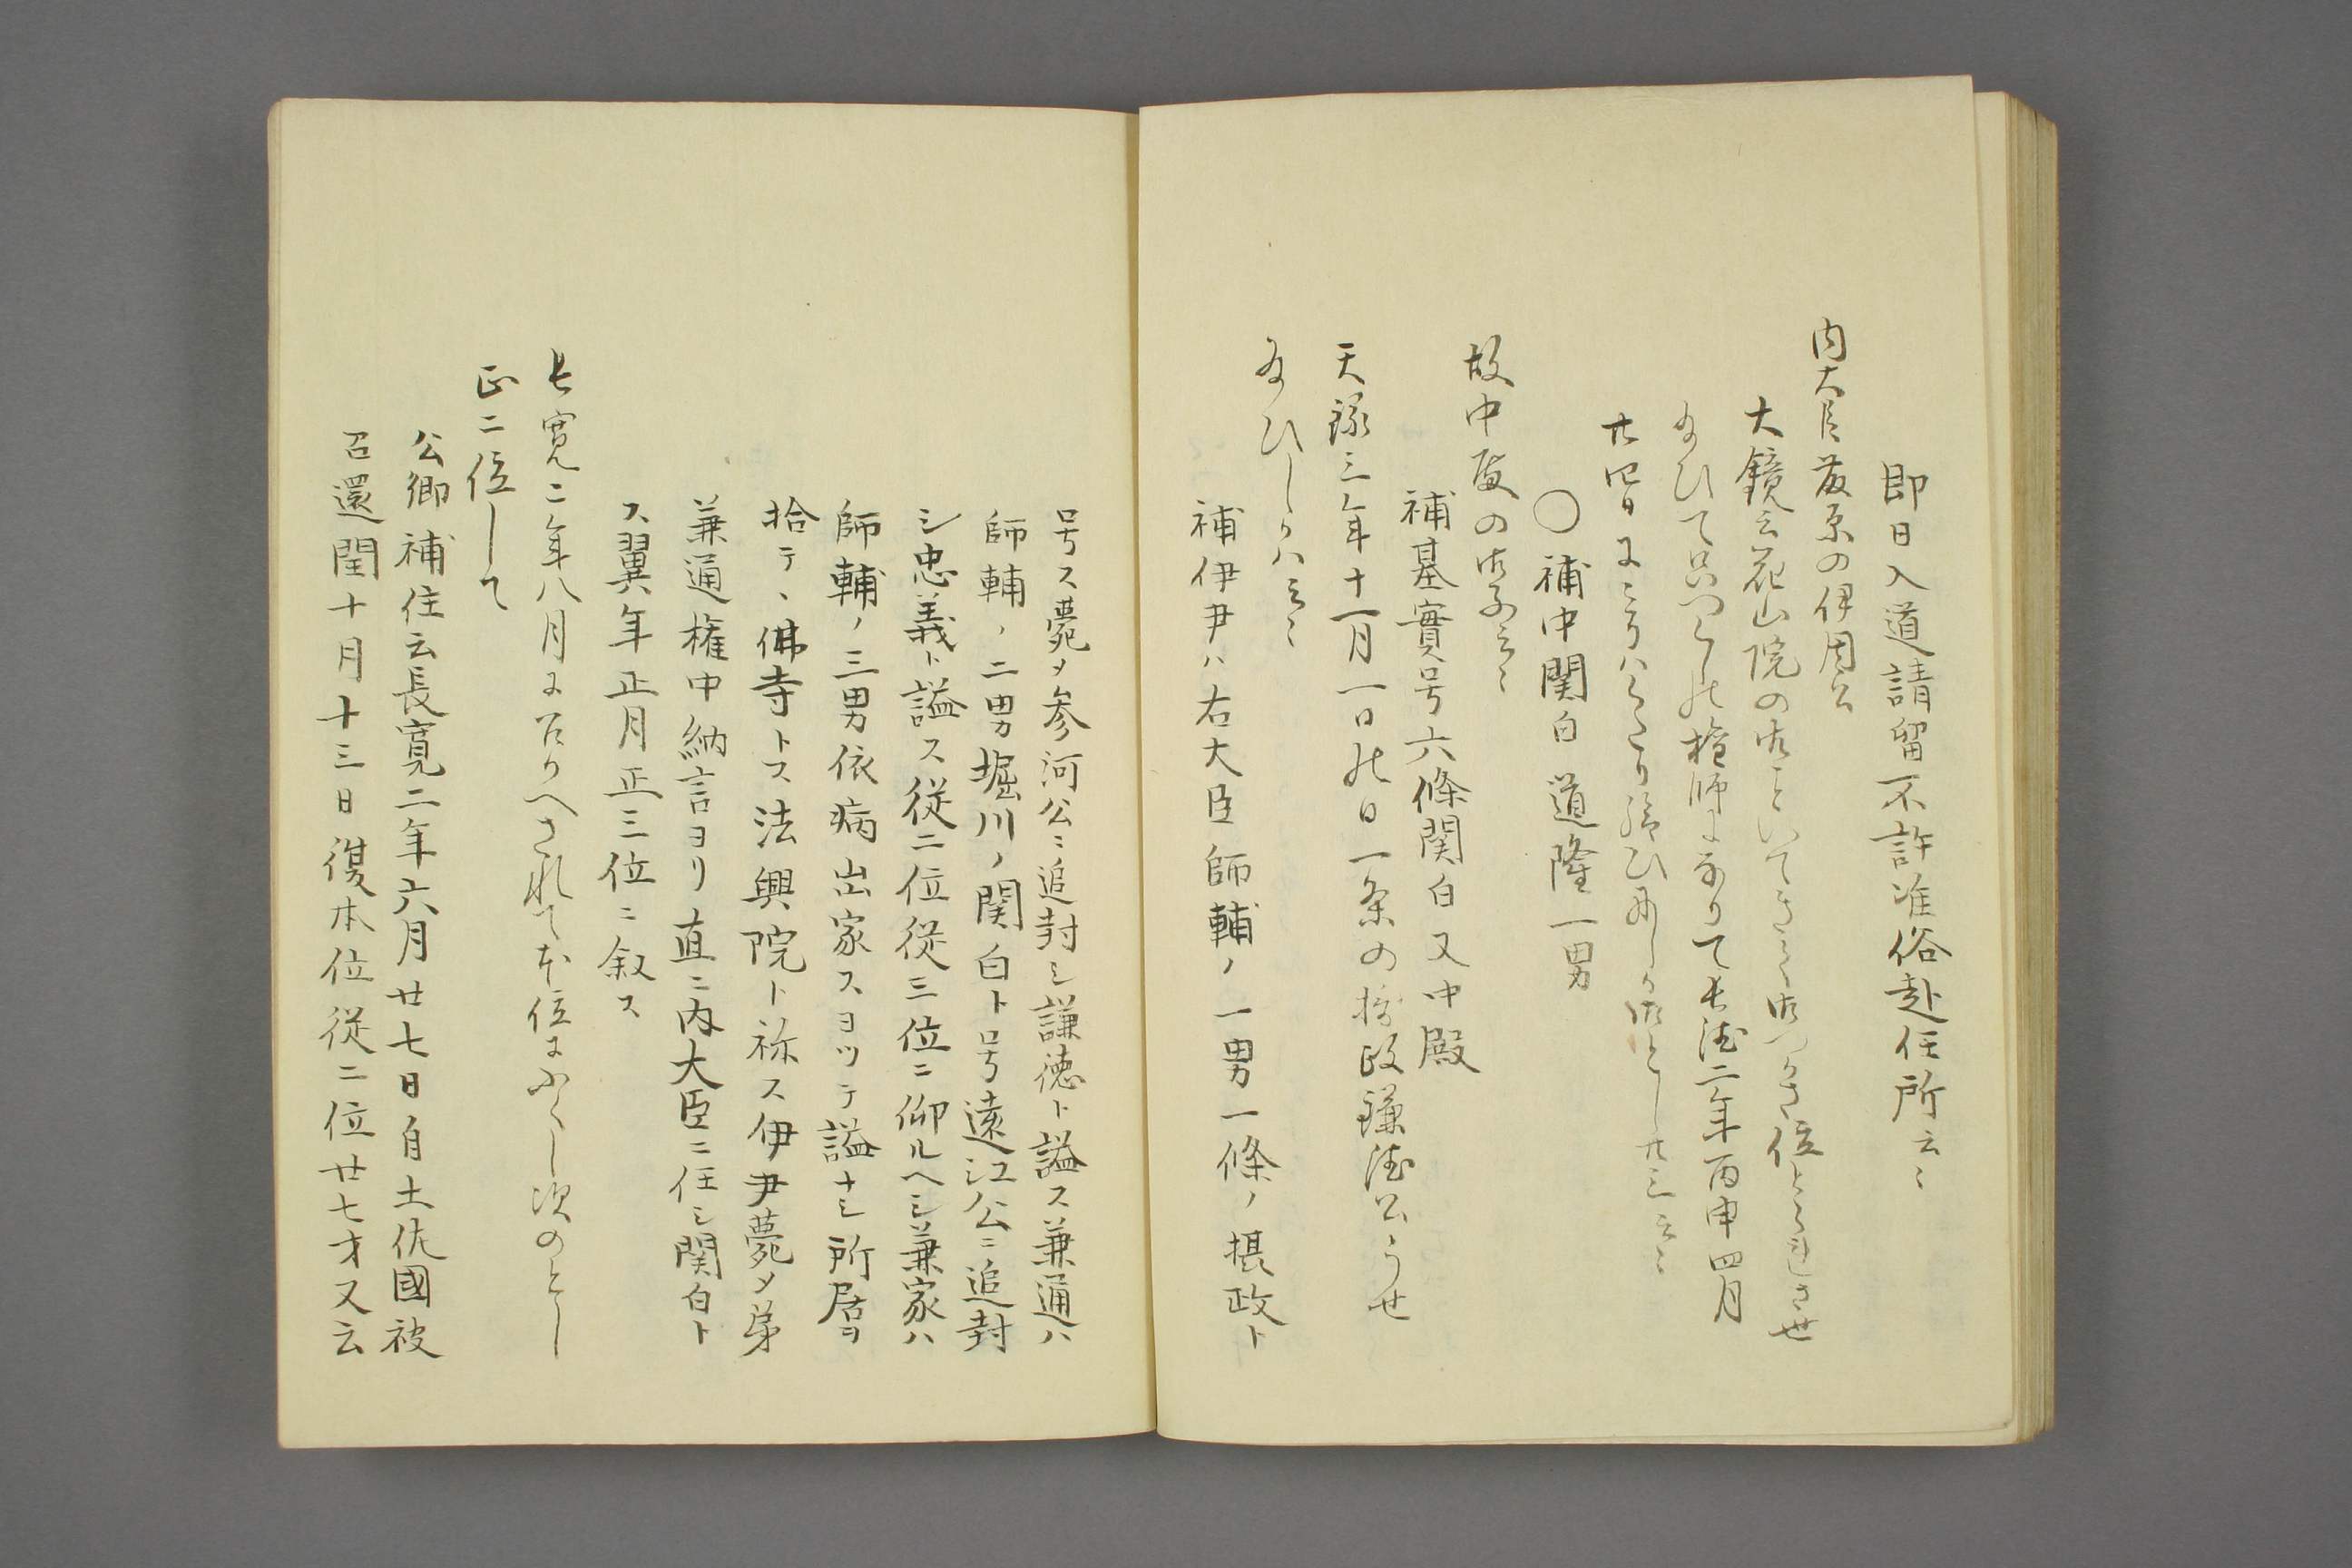 即日入道請留不許准俗赴任所云〻
内大臣藤原の伊周公
大鏡云花山院の御こといてきて御つかさ位とられさせ
給ひて只つくしの権帥になりて長徳二年丙申四月
廿四日にこそはくたり給ひにしか御とし廿三云〻
〇補中関白道隆一男
故中殿の御子云〻
補基實号六條関白又中殿
天禄三年十一月一日の日一条の摂政謙徳公うせ
給ひしかハ云〻
補伊尹ハ右大臣師輔ノ一男一條ノ摂政ト
号ス薨メ参河公ニ追封シ謙徳ト謚ス兼通ハ
師輔ノ二男堀川ノ関白ト号遠江公ニ追封
シ忠義ト謚ス従二位従三位ニ仰ルヘシ兼家ハ
師輔ノ三男依病出家スヨツテ謚ナシ所居ヲ
拾テヽ佛寺トス法興院ト称ス伊尹薨メ弟
兼通権中納言ヨリ直ニ内大臣ニ任シ関白ト
ス翼年正月正三位ニ叙ス
長寛二年八月にめしかへされて本位にふくし次のとし
正二位して
公卿補任云長寛二年六月廿七日自土佐國被
召還閏十月十三日復本位従二位廿七才又云